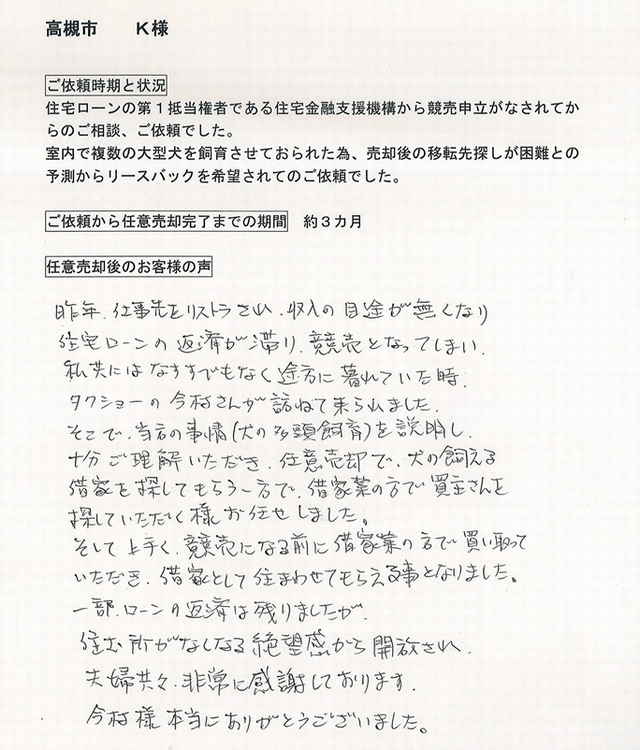 高槻市　　K様
ご依頼時期と状況
住宅ローンの第1抵当権者である住宅金融支援機構から競売申立がなされてか
らのご相談、ご依頼でした。
室内で複数の大型犬を飼育させておられた為、売却後の移転先探しが困難との
予測からリースバックを希望されてのご依頼でした。
ご依頼から任意売却完了までの期間　約3カ月
任意売却後のお客様の声
昨年、仕事先をリストラされ、収入の目途が無くなり
住宅ローンの返済が滞り、競売となってしまい、
私共にはなすすでもなく途方に暮れていた時、
タクショーの今村さんが訪ねて来られました。
そこで、当方の事情(犬の多頭飼育)を説明し、
十分ご理解いただき、任意売却で、犬の飼える
借家を探してもらう一方で、借家業の方で買主さんを
探していただく様お任せしました。
そして上手く、競売になる前に借家業の方で買い取って
いただき、借家として住まわせてもらえる事となりました。
一部、ローンの返済は残りましたが、
住む所がなくなる絶望感から開放され、
夫婦共々、非常に感謝しております。
今村様本当にありがとうございました。